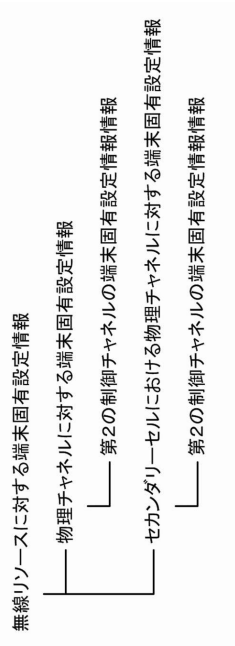 無線リソースに対する端末固有設定情報
物理チャネルに対する端末固有設定情報
第2の制御チャネルの端末固有設定情報情報
セカンダリーセルにおける物理チャネルに対する端末固有設定情報
第2の制御チャネルの端末固有設定情報情報